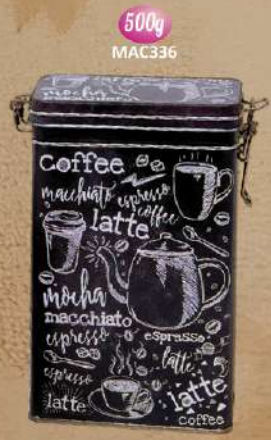 500g
MAC336
mocha
coffee
macchiato espresso
coffee
latte
mocha
macchiato
espresso
espresso
latte
espresso
latte
latte
coffee